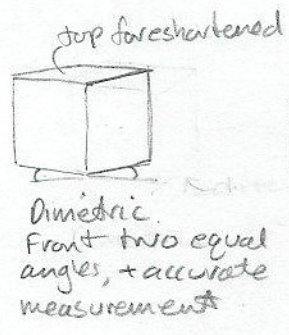 top foreshortened
Dimetric.
Front two equal
angles, + accurate
measurement